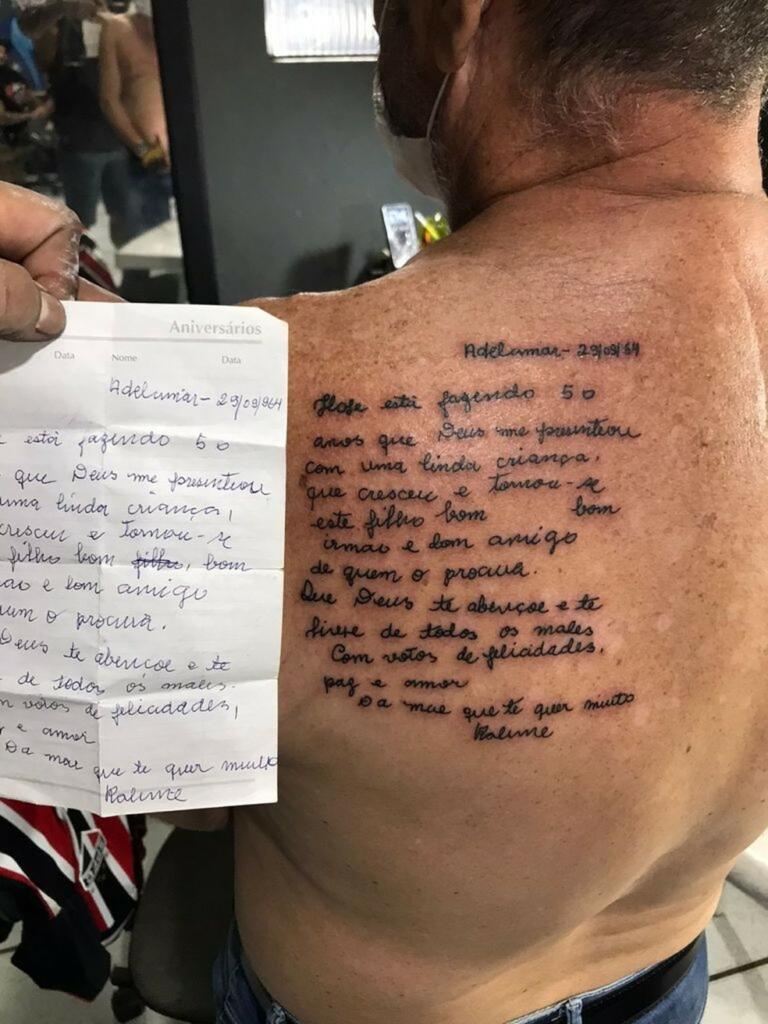 Aniversários
Data Nome Data
Adelimar - 29/09/964
está fazendo 50
que Deus me presenteou
uma linda criança,
cresceu e tornou-se
filho bom filho, bom
e bom amigo
o procura.
Deus te abençoe e te
de todos os males.
votos de felicidades,
e amor
Da mãe que te quer muito
Adelimar - 29/09/64
Hoje está fazendo 50
anos que Deus me presenteou
com uma linda criança,
que cresceu e tornou-se
este filho bom bom
irmão e bom amigo
de quem o procura.
Que Deus te abençoe e te
livre de todos os males
Com votos de felicidades,
paz e amor
Da mãe que te quer muito